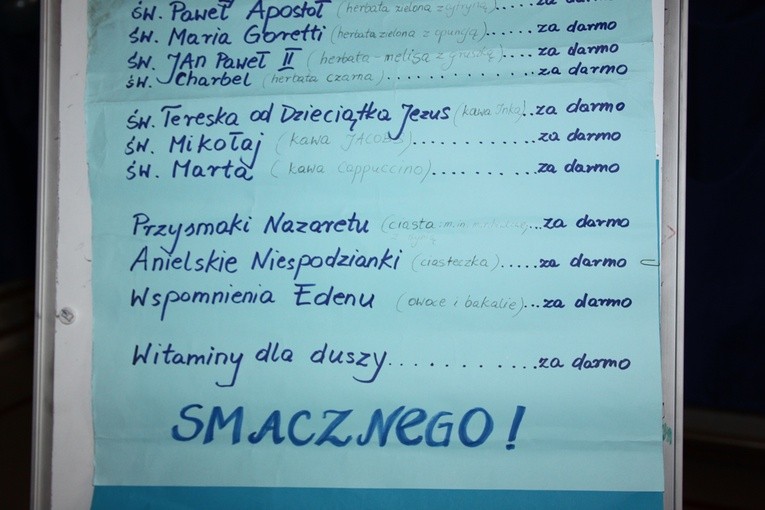 św. Paweł Apostoł (herbata zielona z cytryną)... za darmo
św. Maria Goretti (herbata zielona z opuncją)... za darmo
św. JAn Paweł II (herbata - melisa z gruszką)... za darmo
św. Charbel (herbata czarna)............ za darmo
św. Tereska od Dzieciątka Jezus (kawa Inka)..za darmo
św. Mikołaj (kawa JACOBS)............za darmo
św. Marta (kawa cappuccino)..........za darmo
Przysmaki Nazaretu (ciasta ...za darmo
Anielskie Niespodzianki (ciasteczka).....za darmo
Wspomnienia Edenu (owoce i bakalie)...za darmo
Witaminy dla duszy............za darmo
SMACZNEGO!